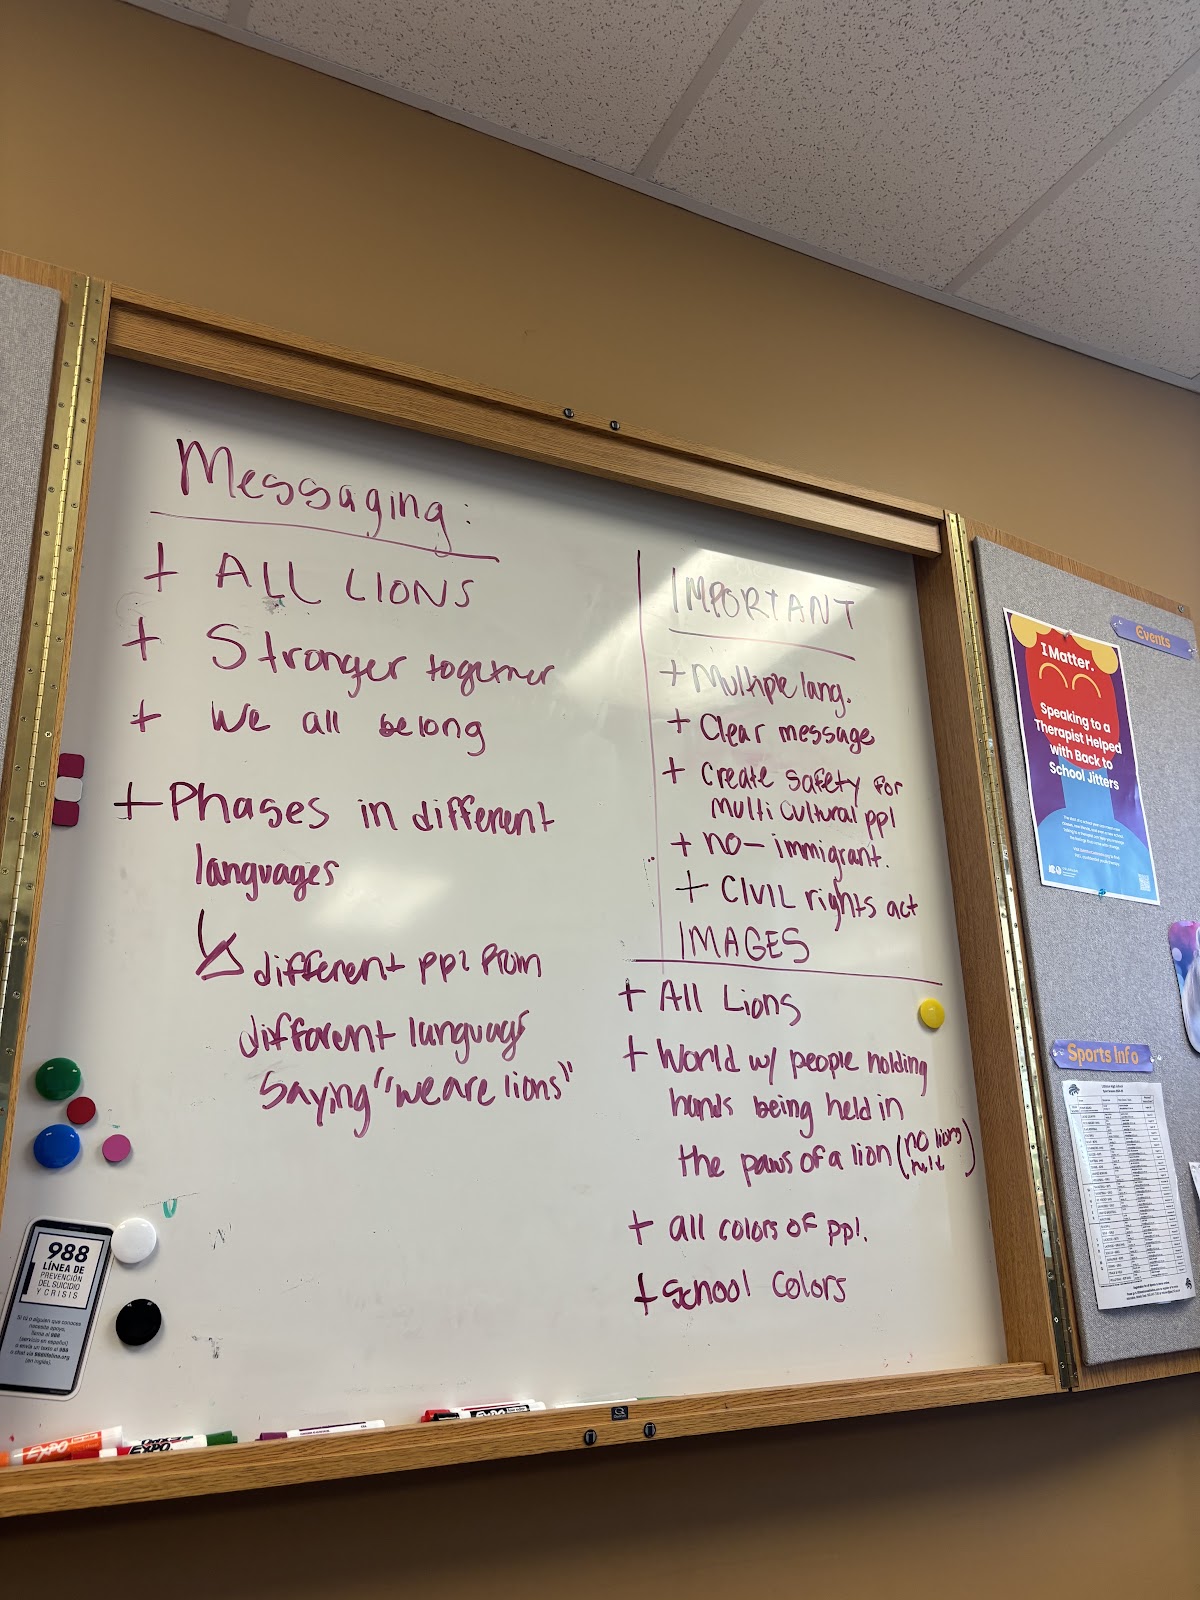 Messaging:
+ ALL LIONS
+ Stronger together
+ We all belong
+ Phases in different
languages
different ppl from
different language
saying "we are lions"
IMPORTANT
+ Multiple lang.
+ Clear message
+ Create safety for
multi cultural ppl
+ no-immigrant.
+ CIVIL rights act
IMAGES
+ All Lions
+ World w/ people holding
hands being held in
the paws of a lion (no lions
+ all colors of ppl.
+ School colors
Events
I Matter.
Speaking to a
Therapist Helped
with Back to
School Jitters
Sports Info
988
LÍNEA DE
PREVENCIÓN
DEL SUICIDIO
Y CRISIS
Si tú o alguien que conoces
necesita apoyo,
llama al 988
(servicio en español)
o envía un texto al 988
o chat vía 988lifeline.org
(en inglés).
EXPO
EXPO